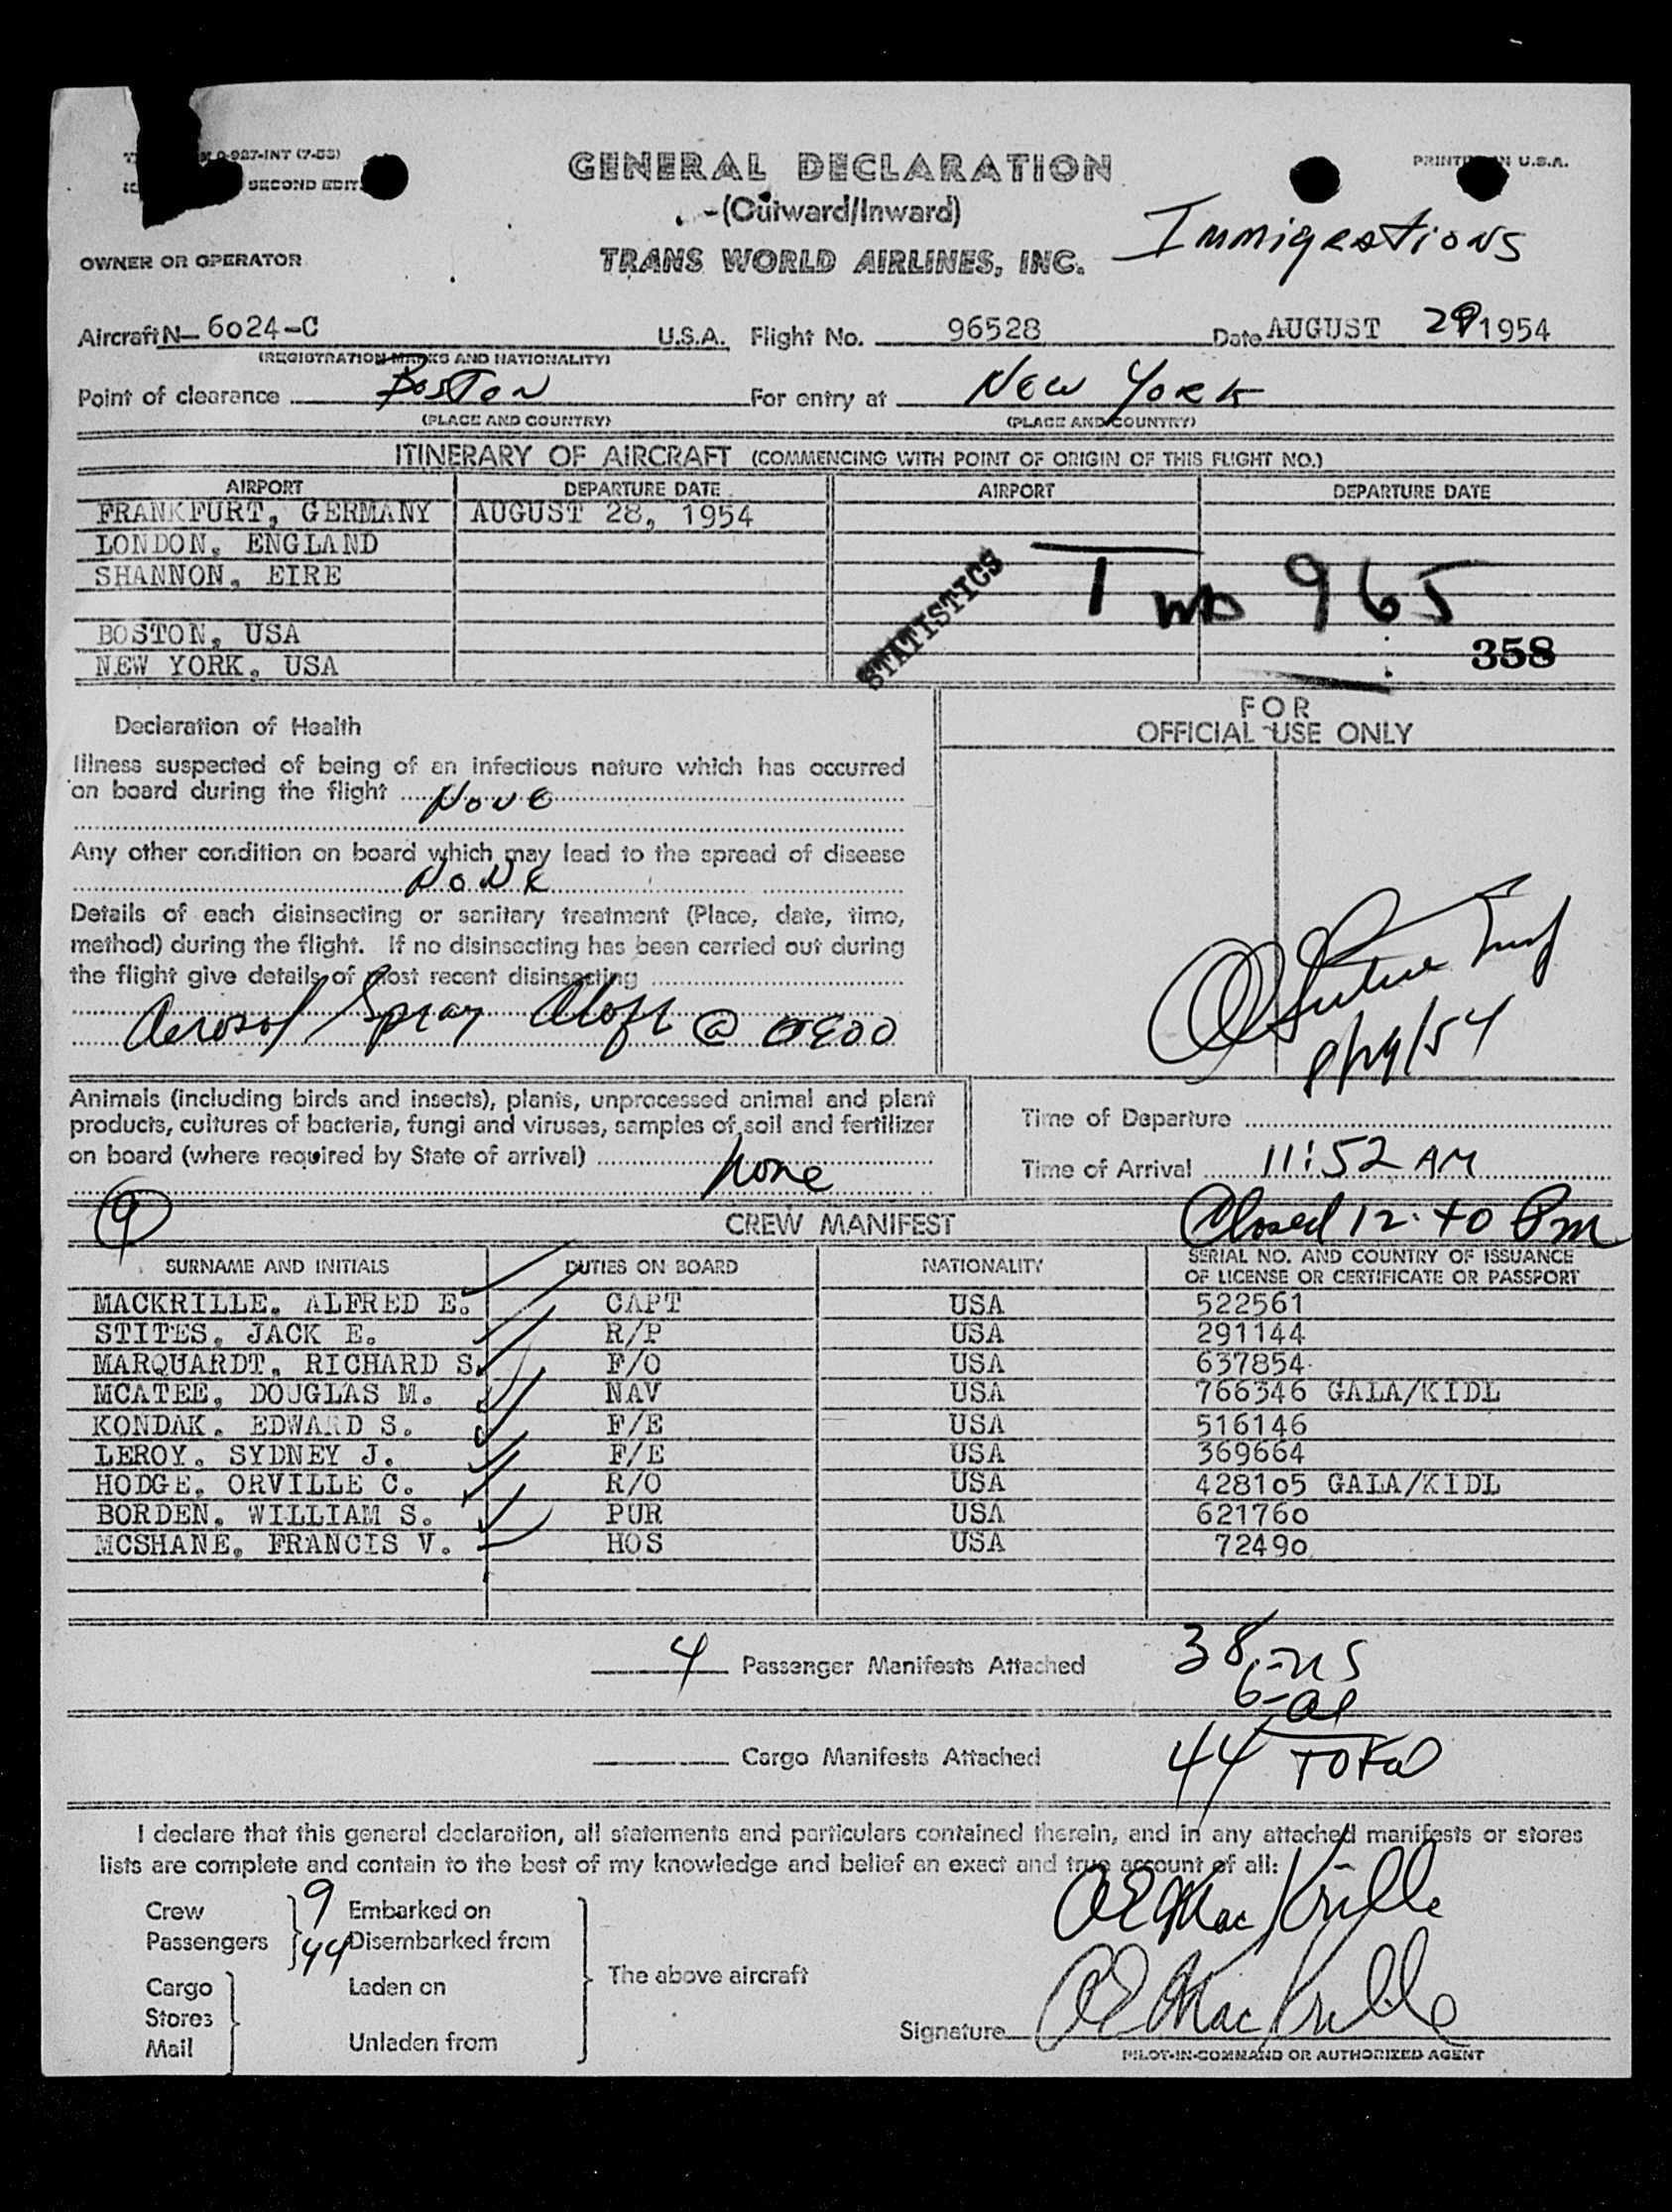 0-987-INT (7-53)
SECOND EDIT
GENERAL DECLARATION
PRINTED IN U.S.A.
(Outward/Inward)
Immigrations
OWNER OR OPERATOR
TRANS WORLD AIRLINES, INC.
Aircraft N- 6024-C U.S.A. Flight No. 96528 Date AUGUST 29 1954
(REGISTRATION MARKS AND NATIONALITY)
Point of clearance Boston For entry at New York
(PLACE AND COUNTRY) (PLACE AND COUNTRY)
ITINERARY OF AIRCRAFT (COMMENCING WITH POINT OF ORIGIN OF THIS FLIGHT NO.)
AIRPORT DEPARTURE DATE AIRPORT DEPARTURE DATE
FRANKFURT, GERMANY AUGUST 28, 1954
LONDON, ENGLAND
SHANNON, EIRE
STATISTICS
Twa 965
BOSTON, USA
358
NEW YORK, USA
FOR
OFFICIAL USE ONLY
Declaration of Health
Illness suspected of being of an infectious nature which has occurred
on board during the flight None
Any other condition on board which may lead to the spread of disease
None
Details of each disinsecting or sanitary treatment (Place, date, time,
method) during the flight. If no disinsecting has been carried out during
the flight give details of most recent disinsecting
Aerosol Spray Aloft @ 0900
8/29/54
Animals (including birds and insects), plants, unprocessed animal and plant
products, cultures of bacteria, fungi and viruses, samples of soil and fertilizer
on board (where required by State of arrival) None
Time of Departure
Time of Arrival 11:52 AM
9
CREW MANIFEST
Closed 12:40 Pm
SURNAME AND INITIALS DUTIES ON BOARD NATIONALITY SERIAL NO. AND COUNTRY OF ISSUANCE
OF LICENSE OR CERTIFICATE OR PASSPORT
MACKRILLE, ALFRED E. CAPT USA 522561
STITES, JACK E. R/P USA 291144
MARQUARDT, RICHARD S. F/O USA 637854
MCATEE, DOUGLAS M. NAV USA 766346 GALA/KIDL
KONDAK, EDWARD S. F/E USA 516146
LEROY, SYDNEY J. F/E USA 369664
HODGE, ORVILLE C. R/O USA 428105 GALA/KIDL
BORDEN, WILLIAM S. PUR USA 621760
MCSHANE, FRANCIS V. HOS USA 72490
4 Passenger Manifests Attached
38-US
6-al
Cargo Manifests Attached
44 Total
I declare that this general declaration, all statements and particulars contained therein, and in any attached manifests or stores
lists are complete and contain to the best of my knowledge and belief an exact and true account of all:
AE MacKrille
Crew 9 Embarked on
Passengers 44 Disembarked from
The above aircraft
Cargo Laden on
Stores
Mail Unladen from
Signature AE MacKrille
PILOT-IN-COMMAND OR AUTHORIZED AGENT